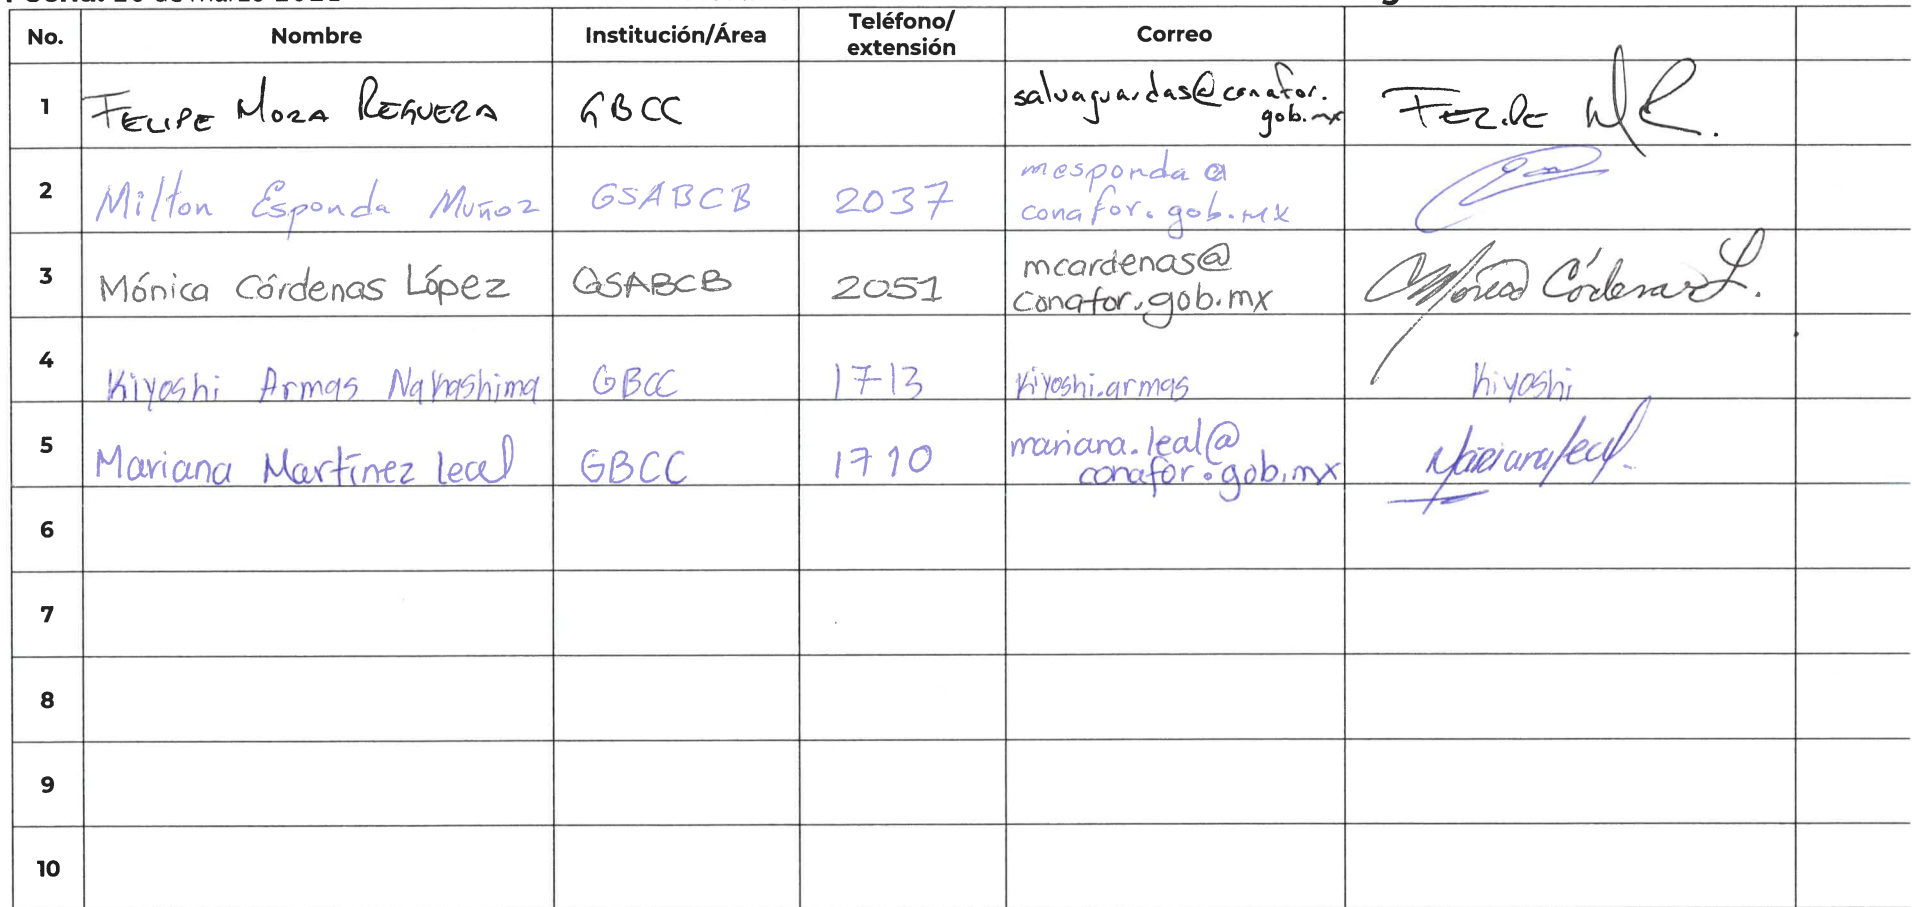 No. Nombre Institución/Área Teléfono/ extensión Correo
1 FELIPE MORA REGUERA GBCC salvaguardas@conafor. gob.mx FELIPE M R.
2 Milton Esponda Muñoz GSABCB 2037 mesponda@ conafor.gob.mx
3 Mónica Córdenas López GSABCB 2051 mcardenas@ conafor.gob.mx Mónica Córdenas L.
4 Kiyoshi Armas Nakashima GBCC 1713 Kiyoshi.armas Kiyoshi
5 Mariana Martínez leal GBCC 1710 mariana.leal@ conafor.gob.mx Mariana leal.
6
7
8
9
10